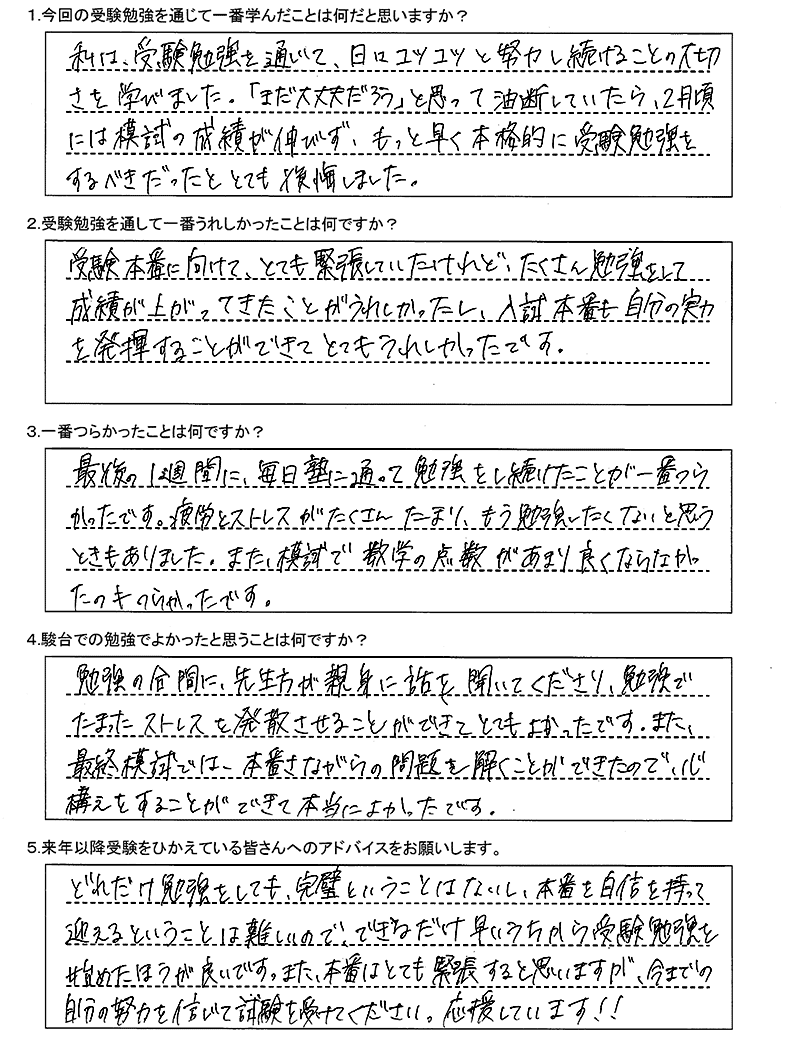 1.今回の受験勉強を通じて一番学んだことは何だと思いますか？
私は、受験勉強を通じて、日々コツコツと努力し続けることの大切
さを学びました。「まだ大丈夫だろう」と思って油断していたら、2月頃
には模試の成績が伸びず、もっと早く本格的に受験勉強を
するべきだったととても後悔しました。
2.受験勉強を通して一番うれしかったことは何ですか？
受験本番に向けて、とても緊張していたけれど、たくさん勉強をして
成績が上がってきたことがうれしかったし、入試本番も自分の実力
を発揮することができてとてもうれしかったです。
3.一番つらかったことは何ですか？
最後の1週間に、毎日塾に通って勉強をし続けたことが一番つら
かったです。疲労とストレスがたくさんたまり、もう勉強したくないと思う
ときもありました。また、模試で数学の点数があまり良くならなかっ
たのもつらかったです。
4.駿台での勉強でよかったと思うことは何ですか？
勉強の合間に、先生方が親身に話を聞いてくださり、勉強で
たまったストレスを発散させることができてとてもよかったです。また、
最終模試では、本番さながらの問題を解くことができたので、心
構えをすることができて本当によかったです。
5.来年以降受験をひかえている皆さんへのアドバイスをお願いします。
どれだけ勉強をしても、完璧ということはないし、本番を自信を持って
迎えるということは難しいので、できるだけ早いうちから受験勉強を
始めたほうが良いです。また、本番はとても緊張すると思いますが、今までの
自分の努力を信じて試験を受けてください。応援しています！！